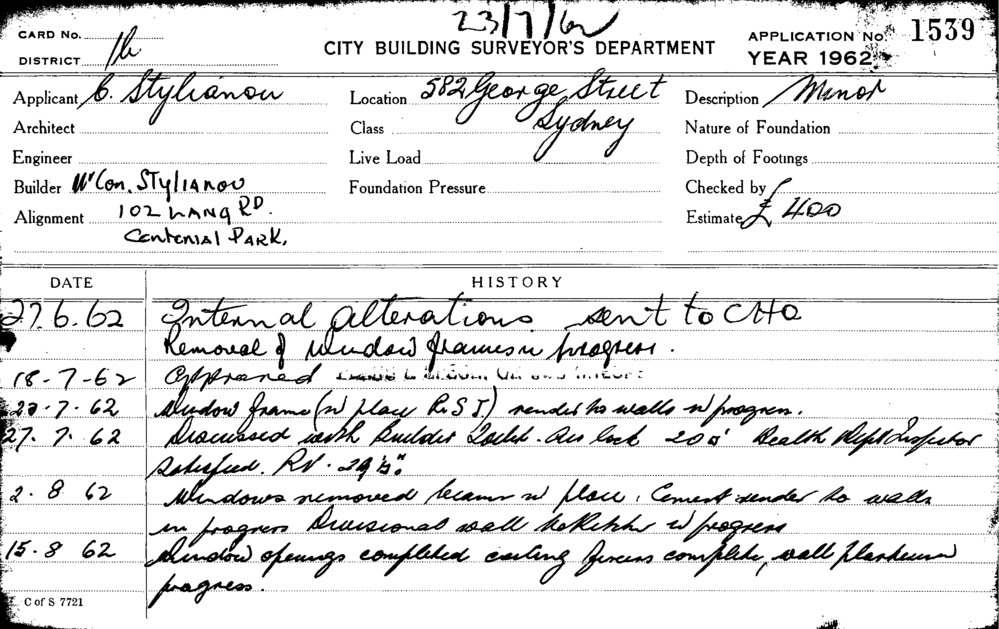 23/7/62
CARD No. APPLICATION No. 1539
DISTRICT 1b CITY BUILDING SURVEYOR'S DEPARTMENT YEAR 1962
Applicant C. Stylianou Location 582 George Street Description Minor
Architect Class Sydney Nature of Foundation
Engineer Live Load Depth of Footings
Builder Con. Stylianou Foundation Pressure Checked by
Alignment 102 LANG RD. Estimate £400
Centenial PARK.
DATE HISTORY
27.6.62 Internal alterations sent to CHO
Removal of window frames in progress.
18-7-62 Approved
7.62 Window frame (in place R.S.J.) render to walls in progress.
27.7.62 Discussed with Builder Toilet. Air lock Health Dept Inspector
satisfied.
2.8 62 Windows removed beams in place. Cement render to walls
in progress Divisional wall to Kitchen in progress
15.8 62 Window openings completed ceiling complete, wall
progress.
C of S 7721